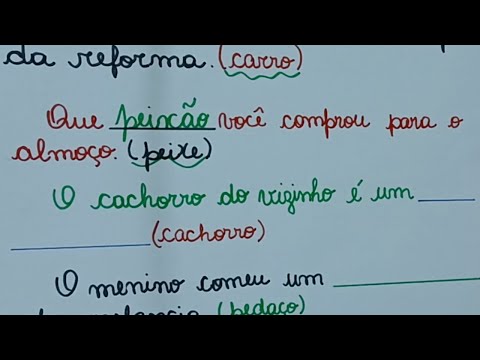 da reforma. (carro)
Que peixão você comprou para o
almoço. (peixe)
O cachorro do vizinho é um
(cachorro)
O menino comeu um
(pedaço)